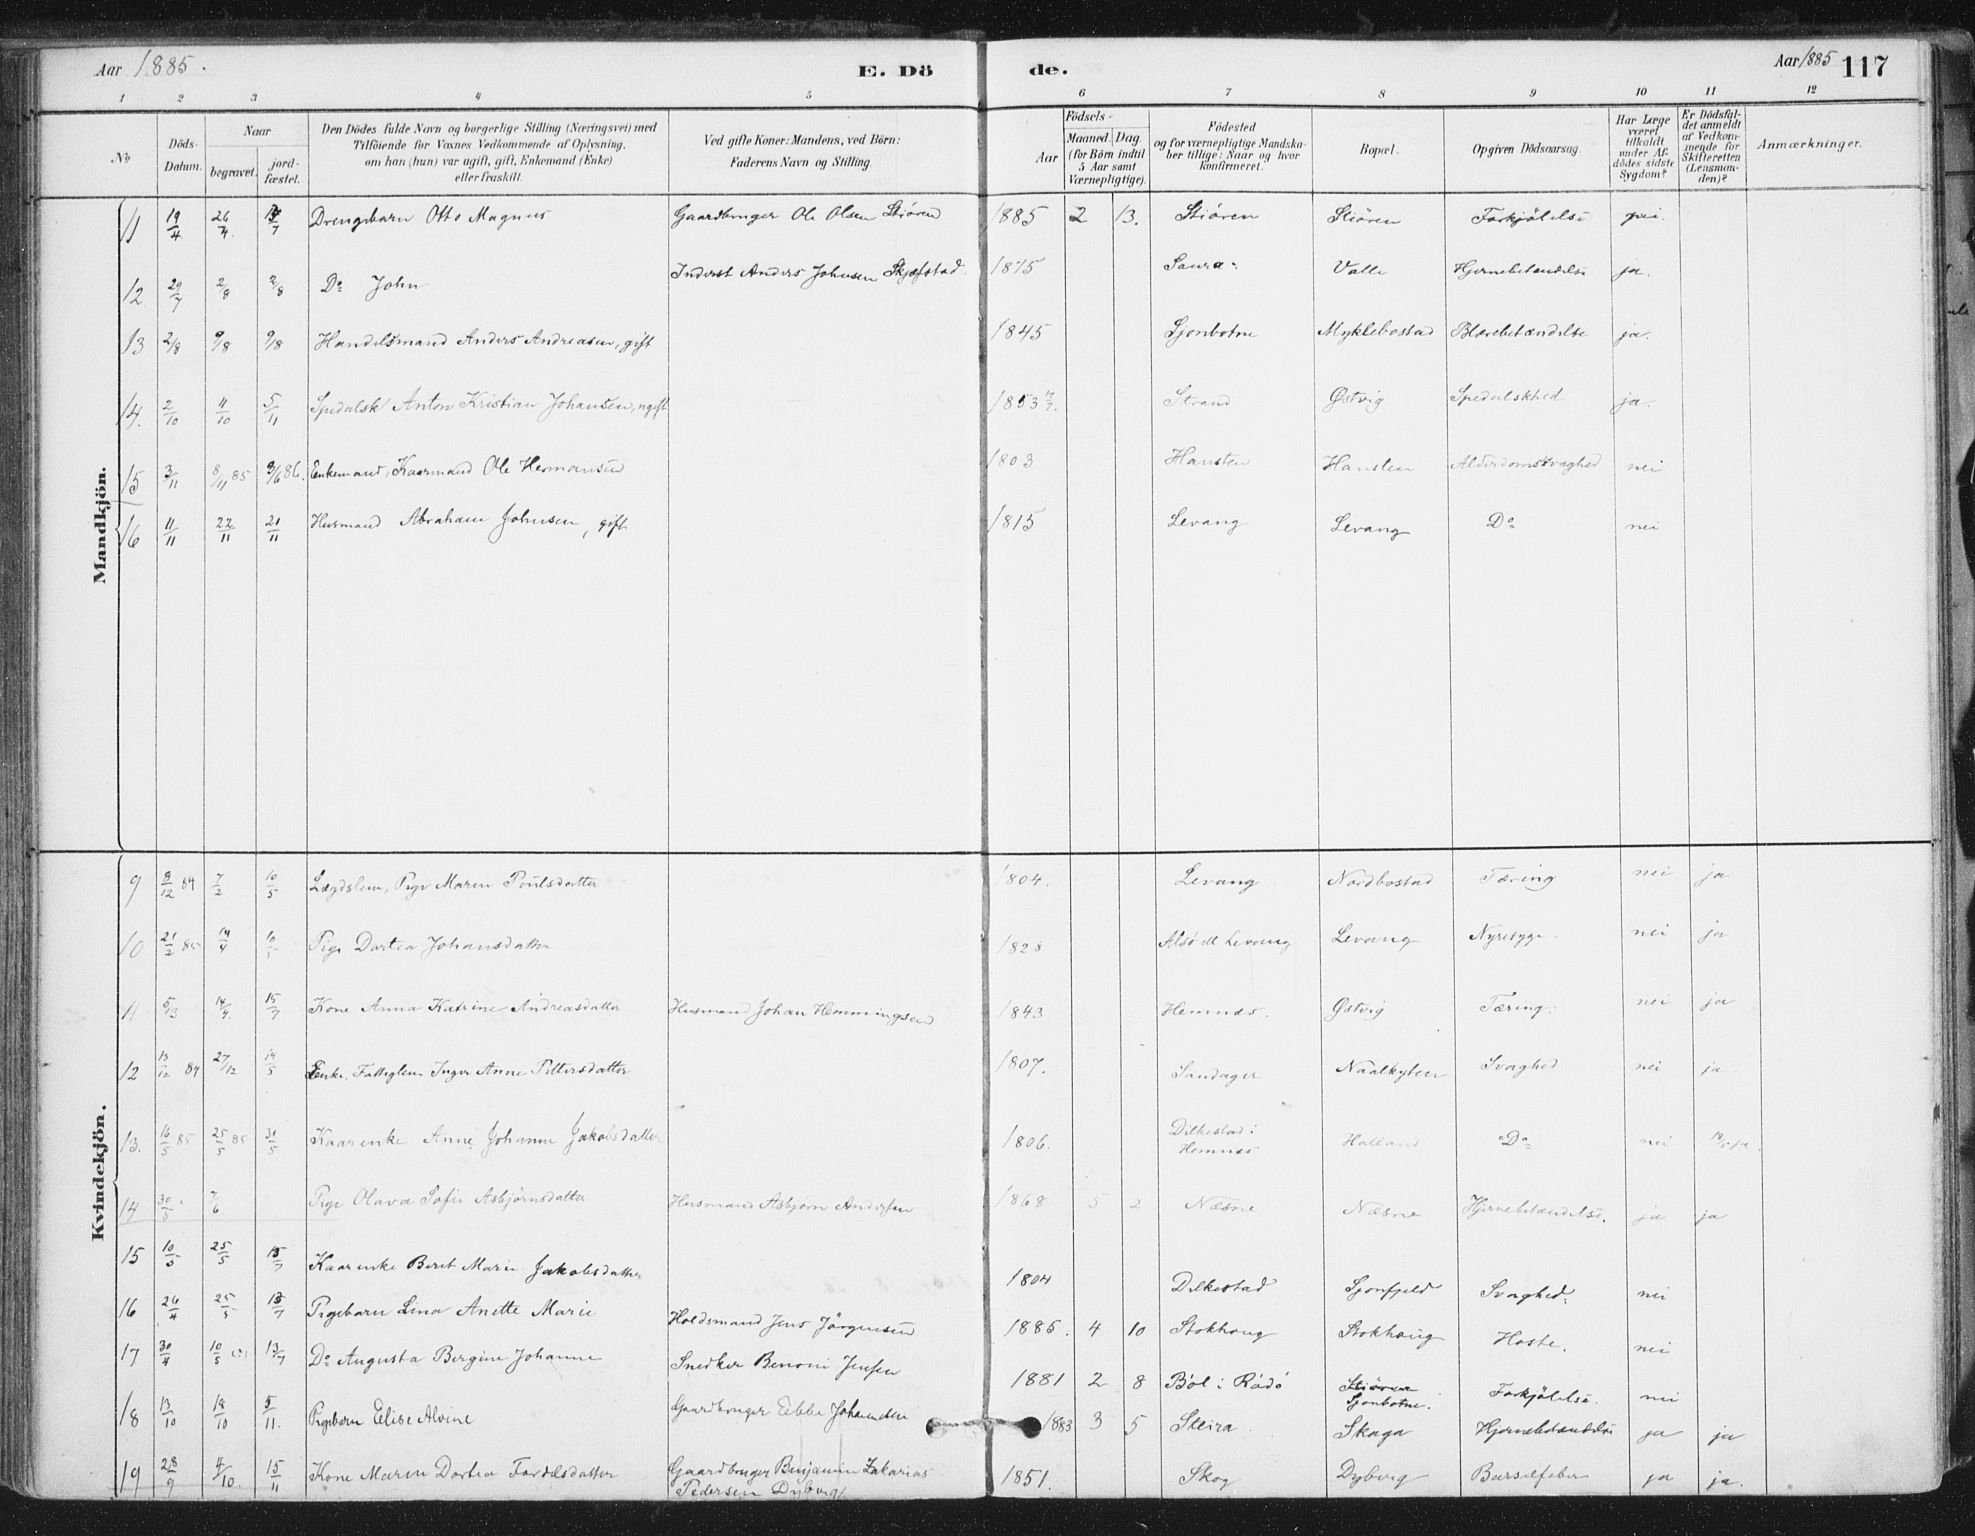 Aar 1885.
E. Dö
de.
Aar 1885 117
1 2 3 4 5 6 7 8 9 10 11 12
No
Döds-Datum.
Naar
begravet.
jord-fæstet.
Den Dödes fulde Navn og borgerlige Stilling (Næringsvei) med
Tilföiende for Voxnes Vedkommende af Oplysning,
om han (hun) var ugift, gift, Enkemand (Enke)
eller fraskilt.
Ved gifte Koner: Mandens, ved Börn:
Faderens Navn og Stilling.
Födsels-
Aar
Maaned. Dag.
(for Börn indtil
5 Aar samt
Værnepligtige).
Födested
og for værnepligtige Mandska-
ber tillige: Naar og hvor
konfirmeret.
Bopæl.
Opgiven Dödsaarsag.
Har Læge
været
tilkaldt
under Af-
dödes sidste
Sygdom?
Er Dödsfal-
det anmeldt
af Vedkom-
mende for
Skifteretten
(Lensman-
den)?
Anmærkninger.
Mandkjön.
11 19/4 26/4 Drengebarn Otto Magnus Gaardbruger Ole Olsen Stiören 1885 2 13. Stiören Stiören Forkjölelse nei.
12 29/7 2/8 2/8 Do John Inderst Anders Johnsen Skjæfstad. 1875 Saura Valle Hjernebetændelse ja.
13 2/8 9/8 9/8 Handelsmand Anders Andreasen, gift 1845 Sjonbotne Myklebostad Blærebetændelse ja.
14. 2/10 4/10 5/11 Spedalsk Anton Kristian Johansen, ugift 1853 7/7. Strand Østvig Spedalskhed ja.
15 3/11 8/11 85 9/6 86. Enkemand, Kaarmand Ole Hermansen 1803 Hansten Hansten Alderdomssvaghed nei
16 11/11 22/11 21/11 Husmand Abraham Johnsen, gift 1815 Levang Levang Do nei
Kvindekjön.
9 8/12 84 7/2 10/5 Lægdslem, Pige Maren Poulsdatter 1804. Levang Nordbostad Tæring nei ja
10 21/2 85 14/4 10/5 Pige Dortea Johansdatter 1828 Levang Levang Nyresyge. nei ja
11 5/3 14/4. 15/7 Kone Anna Katrine Andreasdatter Husmand Johan Hemmingsen 1843 Hemnæs. Østvig Tæring. nei ja
12 13/12 84 27/12 14/5 Enke, Fattiglem Inger Anne Pettersdatter 1807. Sandager Svaghed nei ja.
13. 16/5 85 25/5 85 31/5 Kaarenke Anne Johanne Jakobsdatter 1806. Dilkestad i Hemnæs Holland Do nei ja.
14 30/5 7/6 Pige Olava Sofie Asbjørnsdatter Husmand Asbjørn Andersen 1868 5 2 Næsne Næsne Hjernebetændelse. ja ja
15 10/5 25/5 13/7 Kaarenke Beret Marie Jakobsdatter 1804 Dilkestad Sjonfjeld Svaghed. nei
16 26/4 25/5 13/7 Pigebarn Lina Anette Marie Holdsmand Jens Jörgensen 1885. 4 10 Stokhaug Stokhaug Hoste. nei
17 30/4 10/5 13/7 Do Augusta Bergine Johanne Snedker Benoni Jensen 1881 2 8 Bol i Rödö Sjonbotne. Forkjölelse. nei
18 13/10 18/10 5/11. Pigebarn Elise Alvine Gaardbruger Ebbe Johansen 1883 3 5 Steira. Skaga Hjernebetændelse ja ja
19 28/9 4/10. 15/11 Kone Maren Dortea Gaardbruger Benjamin Zakarias
Pedersen Dyborg 1851. Skog Dyborg Barselfeber ja ja.